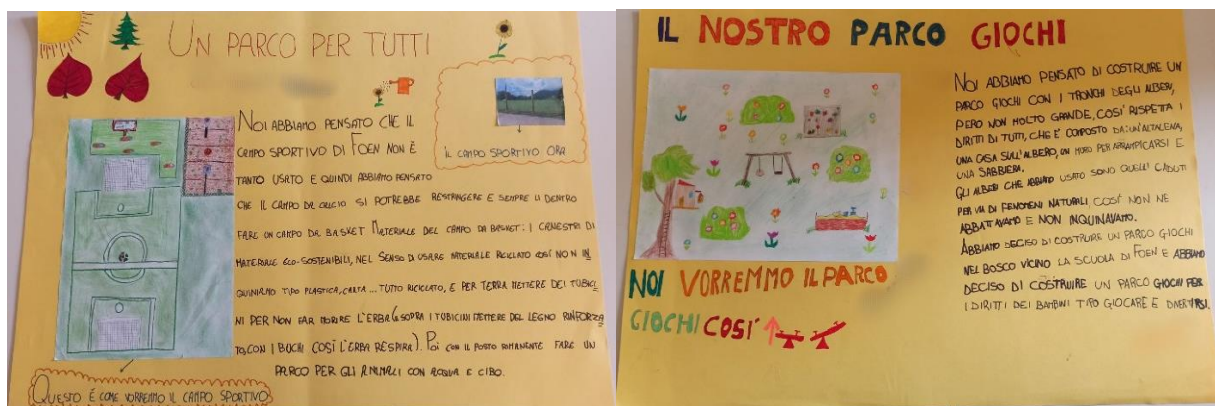 UN PARCO PER TUTTI
NOI ABBIAMO PENSATO CHE IL
CAMPO SPORTIVO DI FOEN NON È
TANTO USATO E QUINDI ABBIAMO PENSATO
CHE IL CAMPO DA CALCIO SI POTREBBE RESTRINGERE E SEMPRE LI DENTRO
FARE UN CAMPO DA BASKET MATERIALE DEL CAMPO DA BASKET: I CANESTRI DI
MATERIALE ECO-SOSTENIBILI, NEL SENSO DI USARE MATERIALE RICICLATO COSÍ NON IN
QUINIAMO TIPO PLASTICA, CARTA... TUTTO RICICLATO, E PER TERRA METTERE DEI TUBICI
NI PER NON FAR MORIRE L'ERBA (E SOPRA I TUBICINI METTERE DEL LEGNO RINFORZA
TO, CON I BUCHI COSÍ L'ERBA RESPIRA). POI CON IL POSTO RIMANENTE FARE UN
PARCO PER GLI ANIMALI CON ACQUA E CIBO.
IL CAMPO SPORTIVO ORA
QUESTO É COME VORREMMO IL CAMPO SPORTIVO
IL NOSTRO PARCO GIOCHI
NOI ABBIAMO PENSATO DI COSTRUIRE UN
PARCO GIOCHI CON I TRONCHI DEGLI ALBERI,
PERO NON MOLTO GRANDE, COSI' RISPETTA I
DIRITTI DI TUTTI, CHE E' COMPOSTO DA: UN'ALTALENA,
UNA CASA SULL'ALBERO, UN MURO PER ARRAMPICARSI E
UNA SABBIERA.
GLI ALBERI CHE ABBIAMO USATO SONO QUELLI CADUTI
PER VIA DI FENOMENI NATURALI, COSI' NON NE
ABBATTAVAMO E NON INQUINAVAMO.
ABBIAMO DECISO DI COSTRUIRE UN PARCO GIOCHI
NEL BOSCO VICINO LA SCUOLA DI FOEN E ABBIAMO
DECISO DI COSTRUIRE UN PARCO GIOCHI PER
I DIRITTI DEI BAMBINI TIPO GIOCARE E DIVERTIRSI.
NOI VORREMMO IL PARCO
GIOCHI COSI'